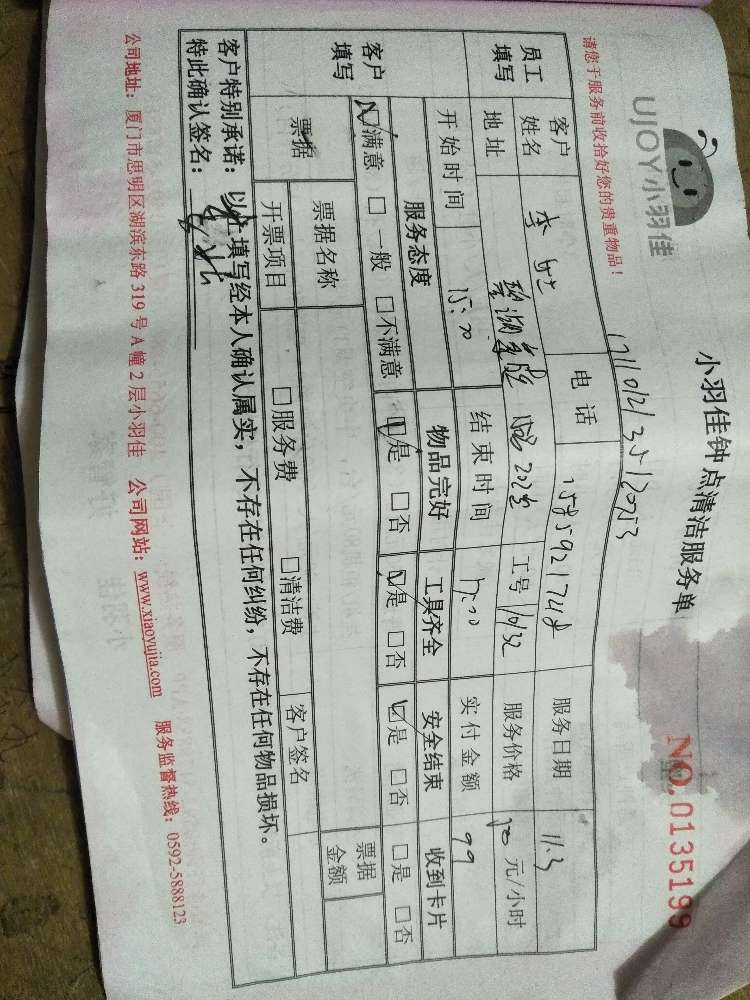 UJOY小羽佳
小羽佳钟点清洁服务单
NO.0135199
请您于服务前收拾好您的贵重物品！
员工填写
客户姓名 李 电话 服务日期 11.3
地址 202室 工号 服务价格 元/小时
开始时间 15:00 结束时间 17:00 实付金额 99
客户填写
服务态度 物品完好 工具齐全 安全结束 收到卡片
☑满意 □一般 □不满意 ☑是 □否 ☑是 □否 ☑是 □否 □是 □否
票据 票据名称 票据金额
开票项目 □服务费 □清洁费 客户签名
客户特别承诺：以上填写经本人确认属实，不存在任何纠纷，不存在任何物品损坏。
特此确认签名：
公司地址：厦门市思明区湖滨东路319号A幢2层小羽佳 公司网站：www.xiaoyujia.com 服务监督热线：0592-5888123